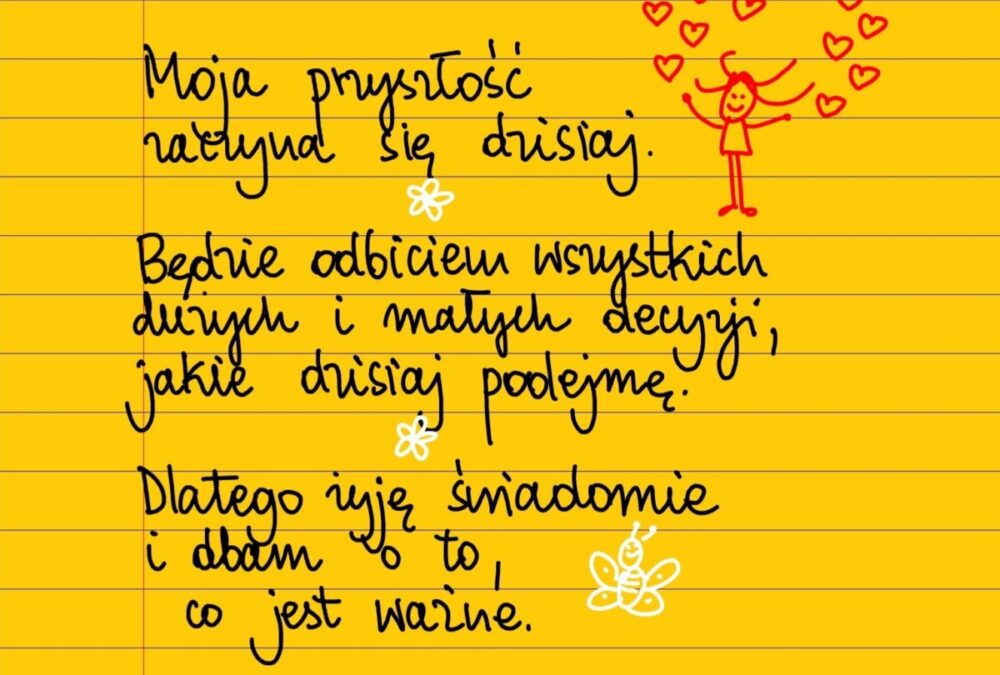 Moja przyszłość
zaczyna się dzisiaj.
Będzie odbiciem wszystkich
dużych i małych decyzji,
jakie dzisiaj podejmę.
Dlatego żyję świadomie
i dbam o to,
co jest ważne.